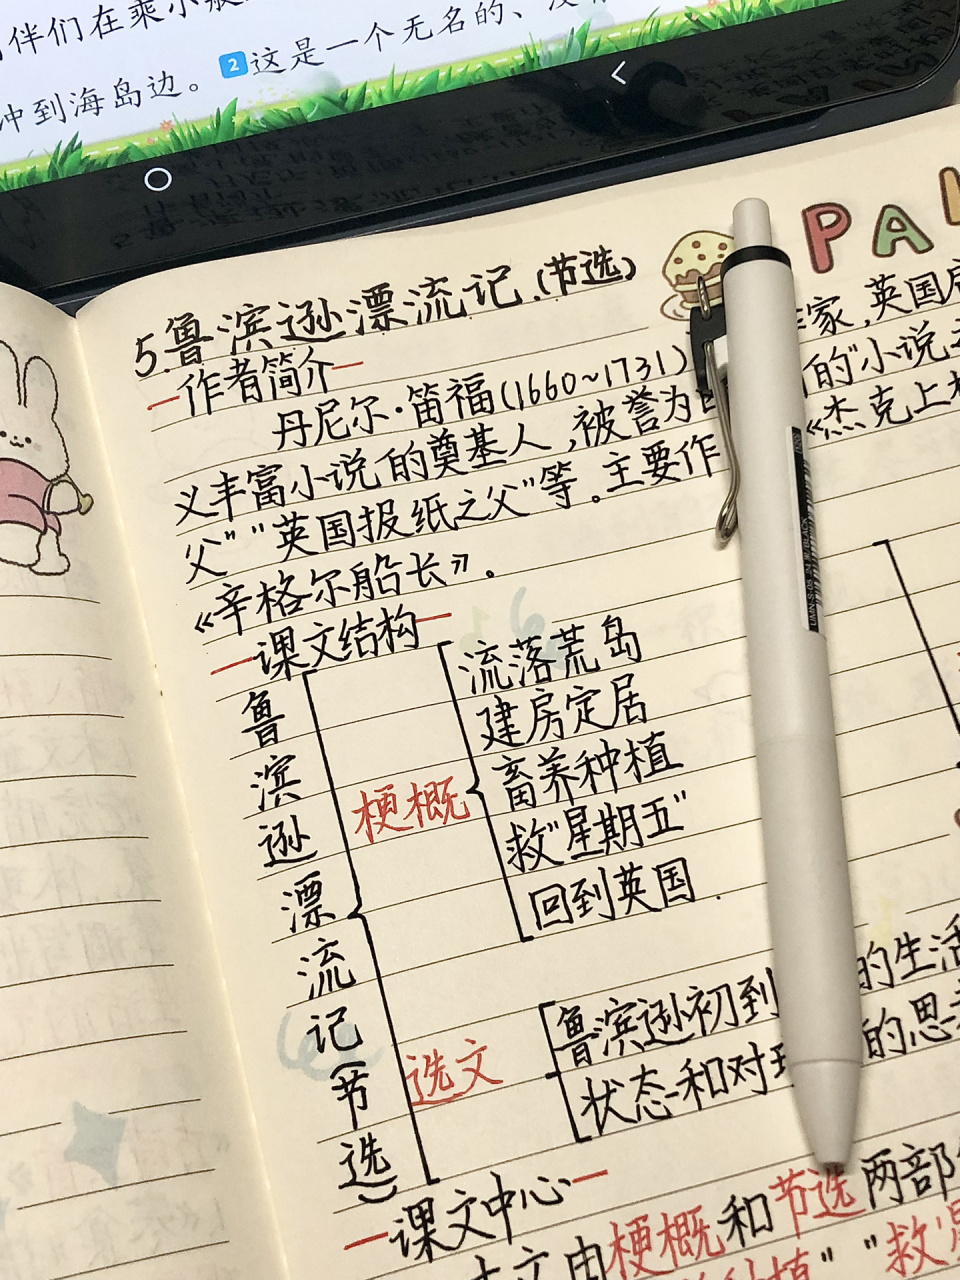 伴们在乘小
冲到海岛边。2这是一个无名的、没
PA
5.鲁滨逊漂流记(节选)
作者简介
丹尼尔·笛福(1660~1731)家,英国启
义丰富小说的奠基人,被誉为的小说之
父""英国报纸之父"等。主要作《杰克上校
《辛格尔船长》.
课文结构
鲁滨逊漂流记(节选)
梗概
流落荒岛
建房定居
畜养种植
救"星期五"
回到英国.
选文
鲁滨逊初到的生活
状态和对现的思
课文中心
本文由梗概和节选两部
种植""救
UMN-S-05